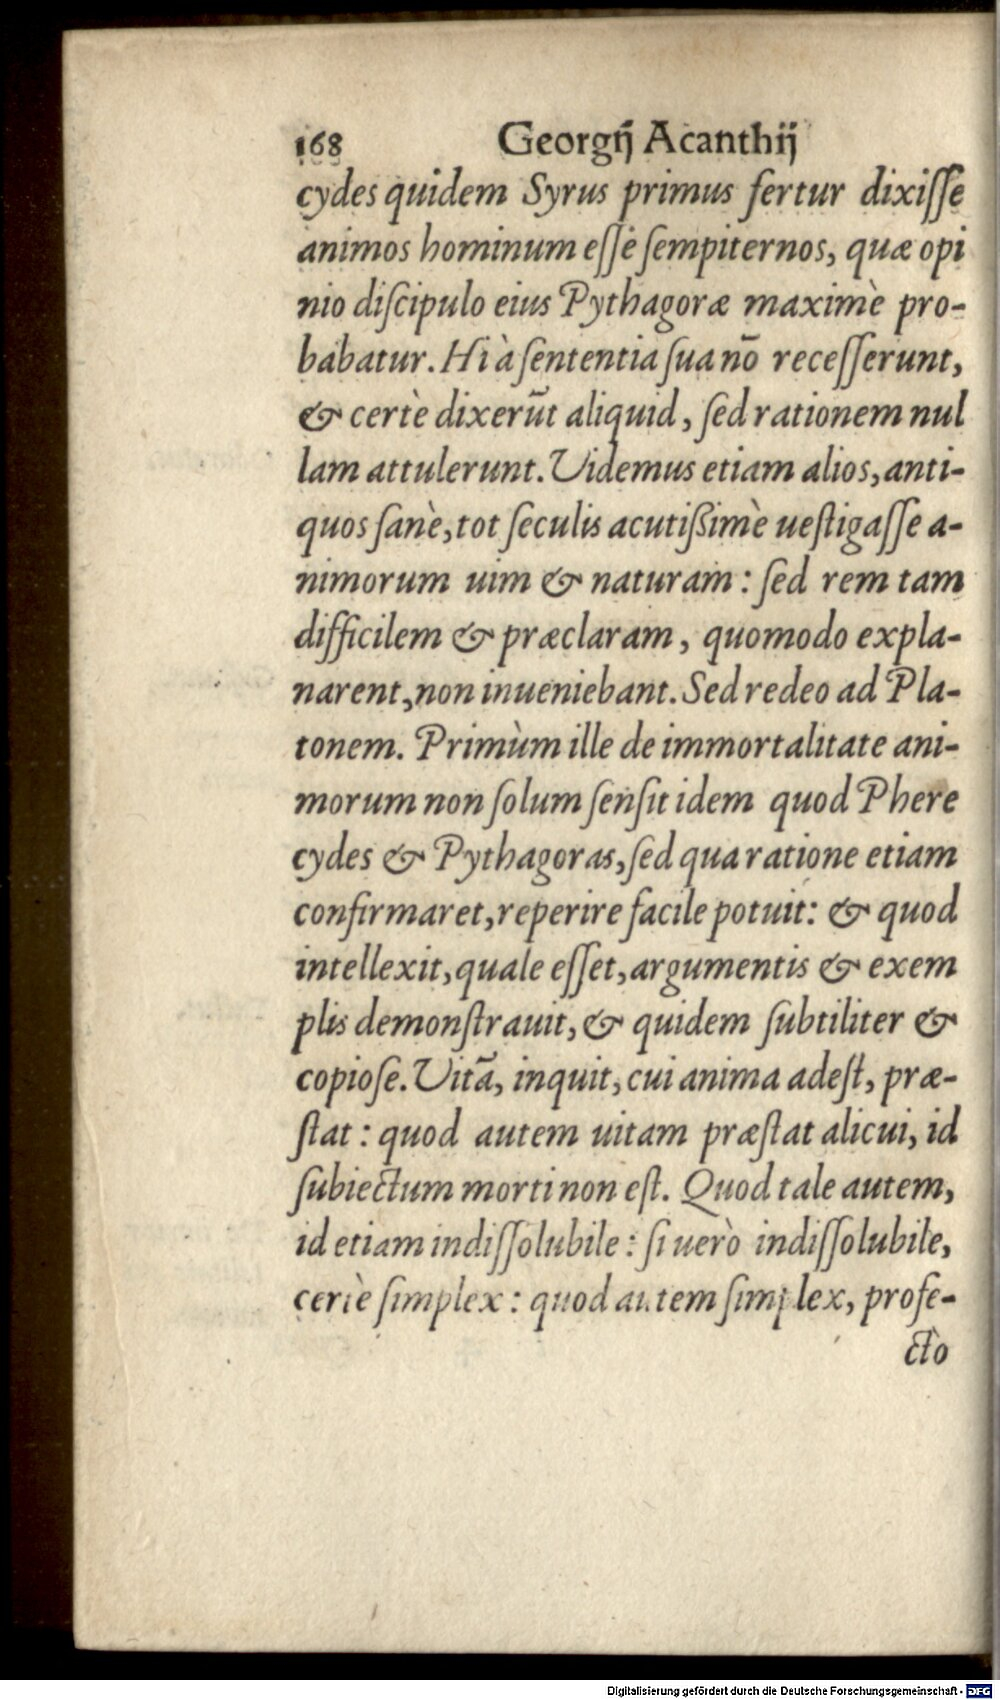 168 Georgij Acanthij
cydes quidem Syrus primus fertur dixiſſe
animos hominum eſſe ſempiternos, quæ opi
nio diſcipulo eius Pythagoræ maximè pro-
babatur. Hi à ſententia ſua nō receſſerunt,
& certè dixerūt aliquid, ſed rationem nul
lam attulerunt. Videmus etiam alios, anti-
quos ſanè, tot ſeculis acutißimè ueſtigaſſe a-
nimorum uim & naturam: ſed rem tam
difficilem & præclaram, quomodo expla-
narent, non inueniebant. Sed redeo ad Pla-
tonem. Primùm ille de immortalitate ani-
morum non ſolum ſenſit idem quod Phere
cydes & Pythagoras, ſed qua ratione etiam
confirmaret, reperire facile potuit: & quod
intellexit, quale eſſet, argumentis & exem
plis demonſtrauit, & quidem ſubtiliter &
copioſe. Vitā, inquit, cui anima adeſt, præ-
ſtat: quod autem uitam præſtat alicui, id
ſubiectum morti non eſt. Quod tale autem,
id etiam indiſſolubile: ſi uerò indiſſolubile,
certè ſimplex: quod autem ſimplex, profe-
ctò
Digitalisierung gefördert durch die Deutsche Forschungsgemeinschaft - DFG